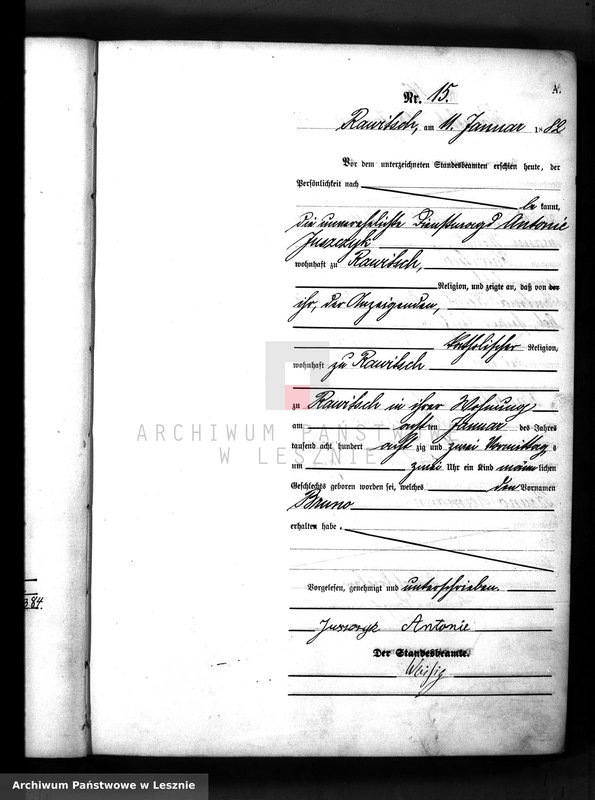 A.
Nr. 15.
Rawitsch, am 11. Januar 1882
Vor dem unterzeichneten Standesbeamten erschien heute, der
Persönlichkeit nach
be kannt,
die unverehelichte Dienstmagd Antonie
Juszczyk
wohnhaft zu Rawitsch,
Religion, und zeigte an, daß von der
ihr, der Anzeigenden,
katholischer Religion,
wohnhaft zu Rawitsch
zu Rawitsch in ihrer Wohnung
am acht ten Januar des Jahres
tausend acht hundert acht zig und zwei Vormittag s
um zwei Uhr ein Kind männ lichen
Geschlechts geboren worden sei, welches den Vornamen
Bruno
erhalten habe.
Vorgelesen, genehmigt und unterschrieben.
Juszczyk Antonie
Der Standesbeamte.
84.
ARCHIWUM PAŃSTWOWE
W LESZNIE
Archiwum Państwowe w Lesznie